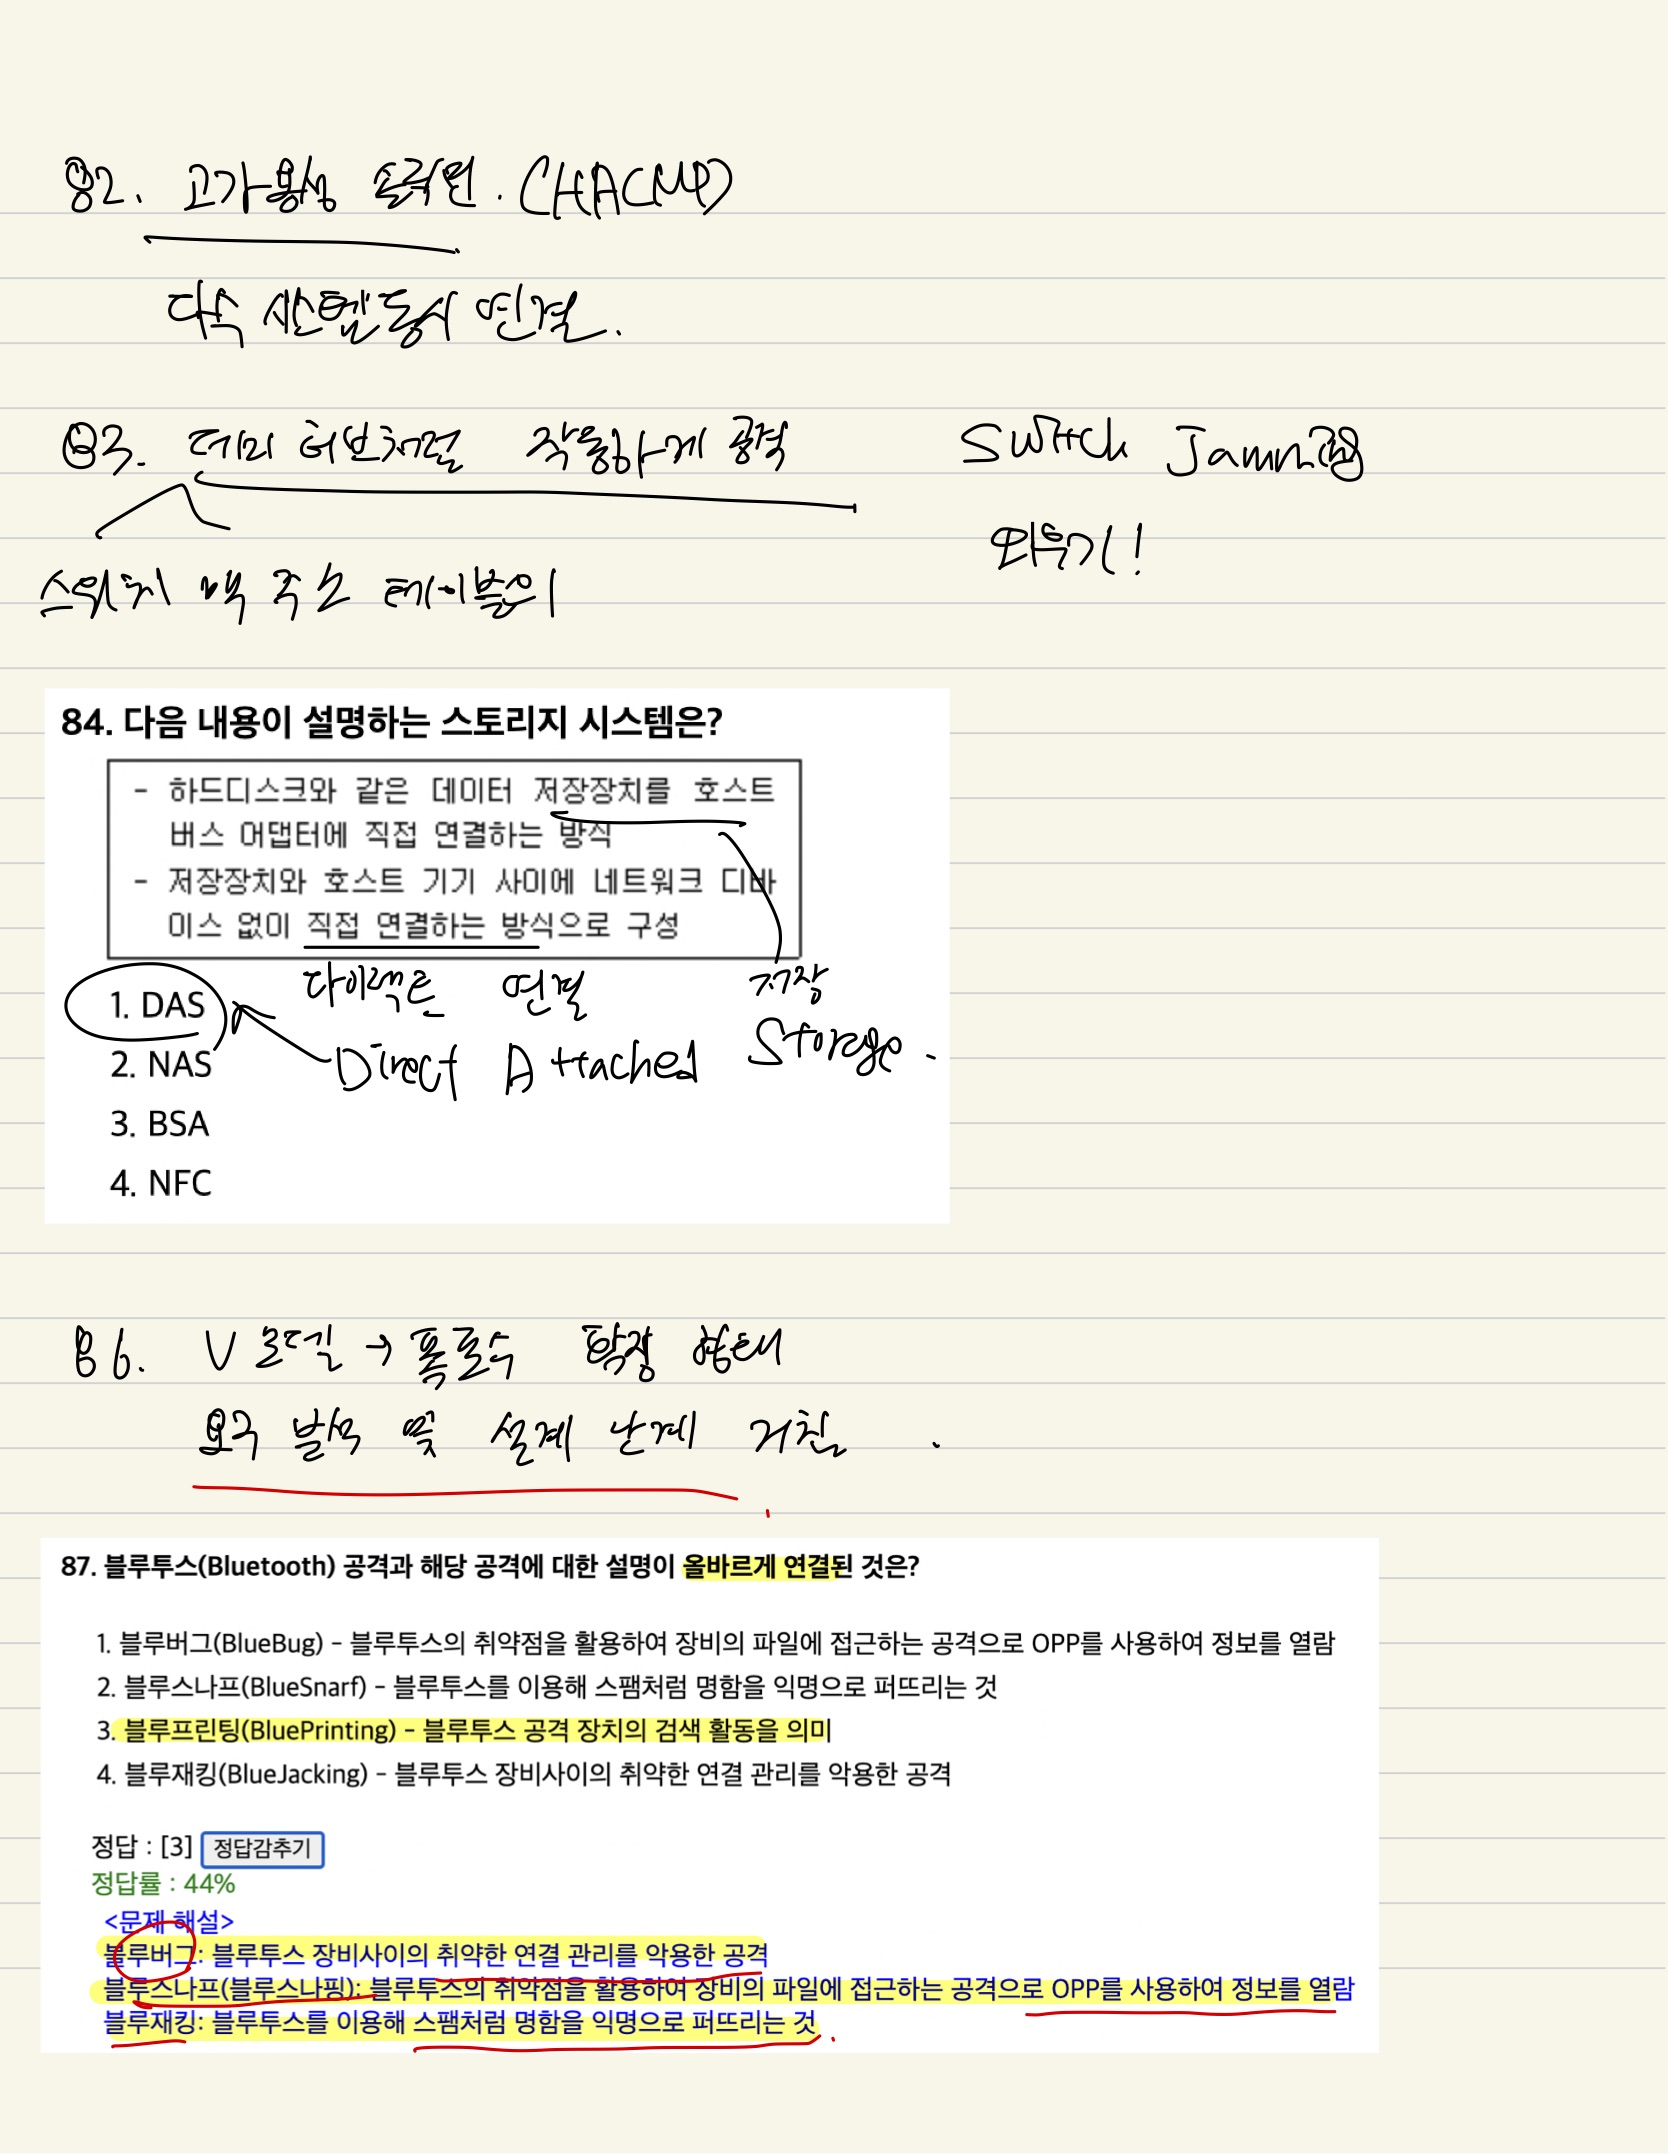 82. 고가용성 솔루션. (HACMP)
다수 시스템 동시 연결.
83. 더미 허브처럼 작동하게 공격
Switch Jamming
외우기!
스위치 맥 주소 테이블의
84. 다음 내용이 설명하는 스토리지 시스템은?
- 하드디스크와 같은 데이터 저장장치를 호스트
버스 어댑터에 직접 연결하는 방식
- 저장장치와 호스트 기기 사이에 네트워크 디바
이스 없이 직접 연결하는 방식으로 구성
다이렉트 연결 저장
1. DAS
Direct Attached Storage.
2. NAS
3. BSA
4. NFC
86. V 모델 → 폭포수 확장 형태
요구 분석 및 설계 단계 거침.
87. 블루투스(Bluetooth) 공격과 해당 공격에 대한 설명이 올바르게 연결된 것은?
1. 블루버그(BlueBug) - 블루투스의 취약점을 활용하여 장비의 파일에 접근하는 공격으로 OPP를 사용하여 정보를 열람
2. 블루스나프(BlueSnarf) - 블루투스를 이용해 스팸처럼 명함을 익명으로 퍼뜨리는 것
3. 블루프린팅(BluePrinting) - 블루투스 공격 장치의 검색 활동을 의미
4. 블루재킹(BlueJacking) - 블루투스 장비사이의 취약한 연결 관리를 악용한 공격
정답 : [3] 정답감추기
정답률 : 44%
<문제 해설>
블루버그: 블루투스 장비사이의 취약한 연결 관리를 악용한 공격
블루스나프(블루스나핑): 블루투스의 취약점을 활용하여 장비의 파일에 접근하는 공격으로 OPP를 사용하여 정보를 열람
블루재킹: 블루투스를 이용해 스팸처럼 명함을 익명으로 퍼뜨리는 것